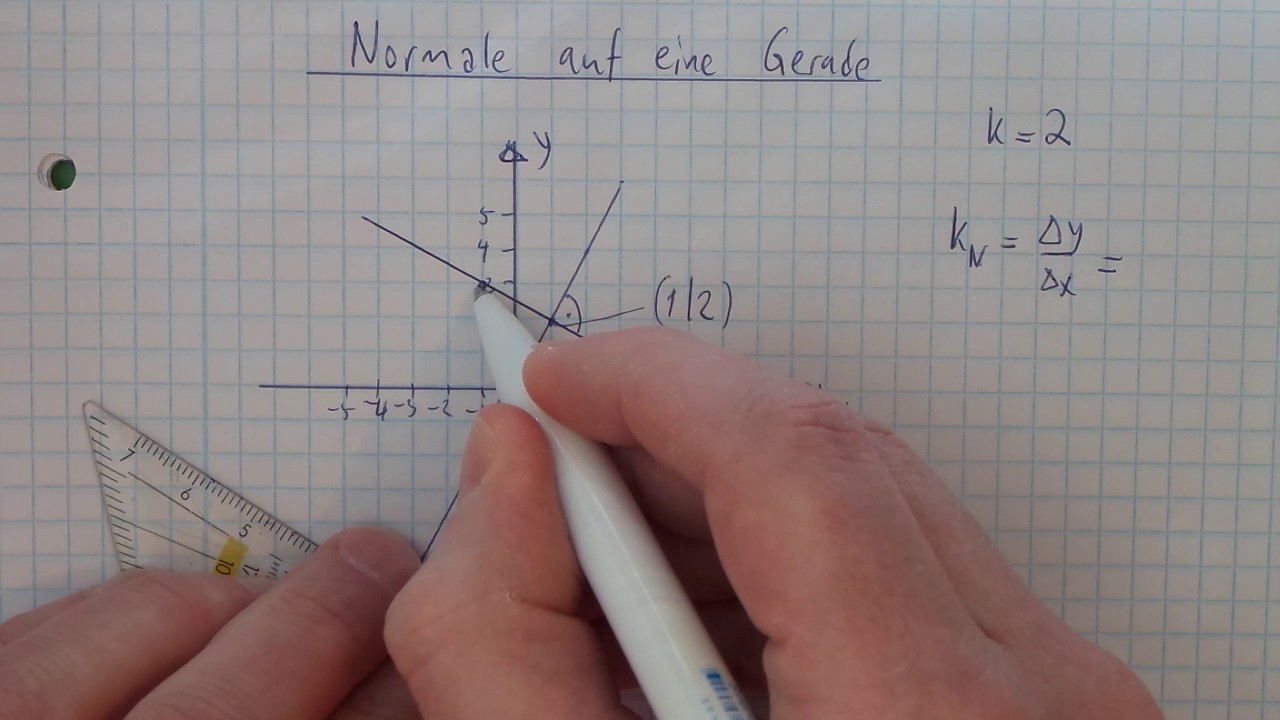 Normale auf eine Gerade
k = 2
y
5
4
k_N = Δy/Δx =
(1|2)
-5 -4 -3 -2
7
6
5
10